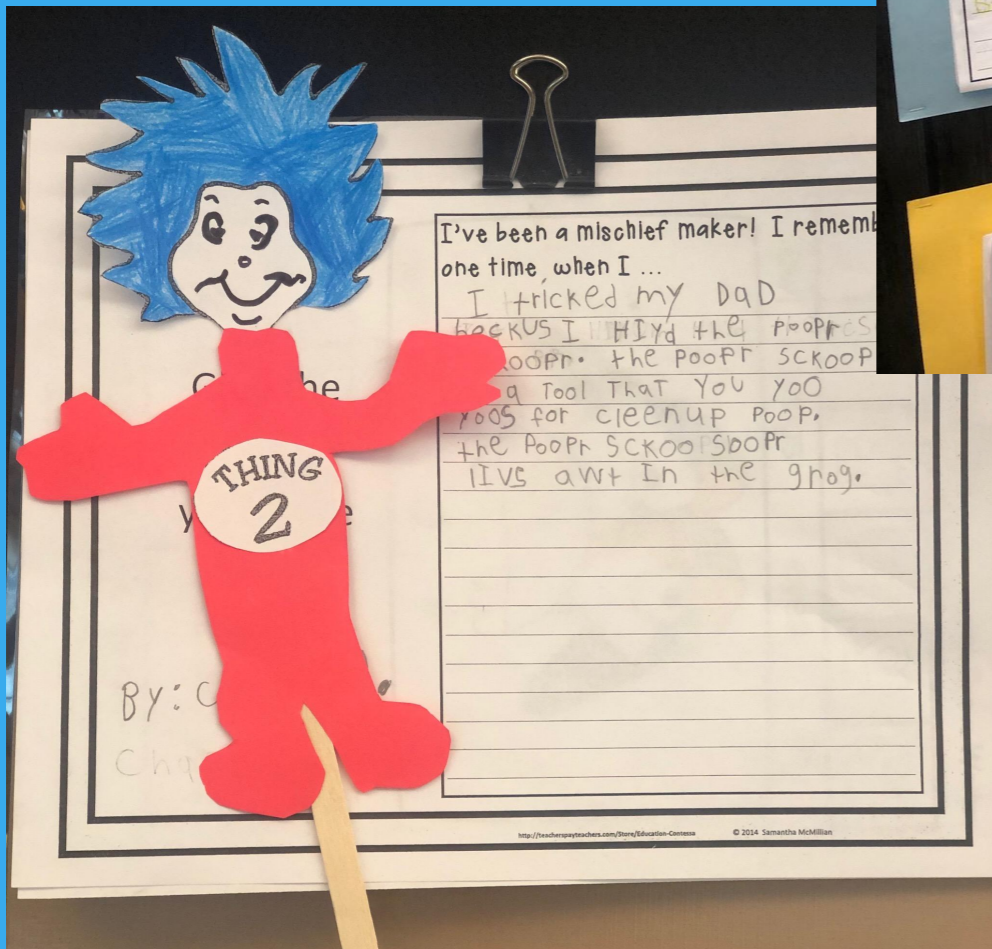 I've been a mischief maker! I rememb
one time, when I ...
I tricked my DaD
beckus I HIyd the PooPr
ooPr. the PooPr SCKooP
a Tool THaT You yoo
yoos for cleenup PooP.
the PooPr SCKoo SooPr
lIvs awt In the grog.
he
THING
2
y
e
BY: C
Cha
http://teacherspayteachers.com/Store/Education-Contessa
© 2014 Samantha McMillian